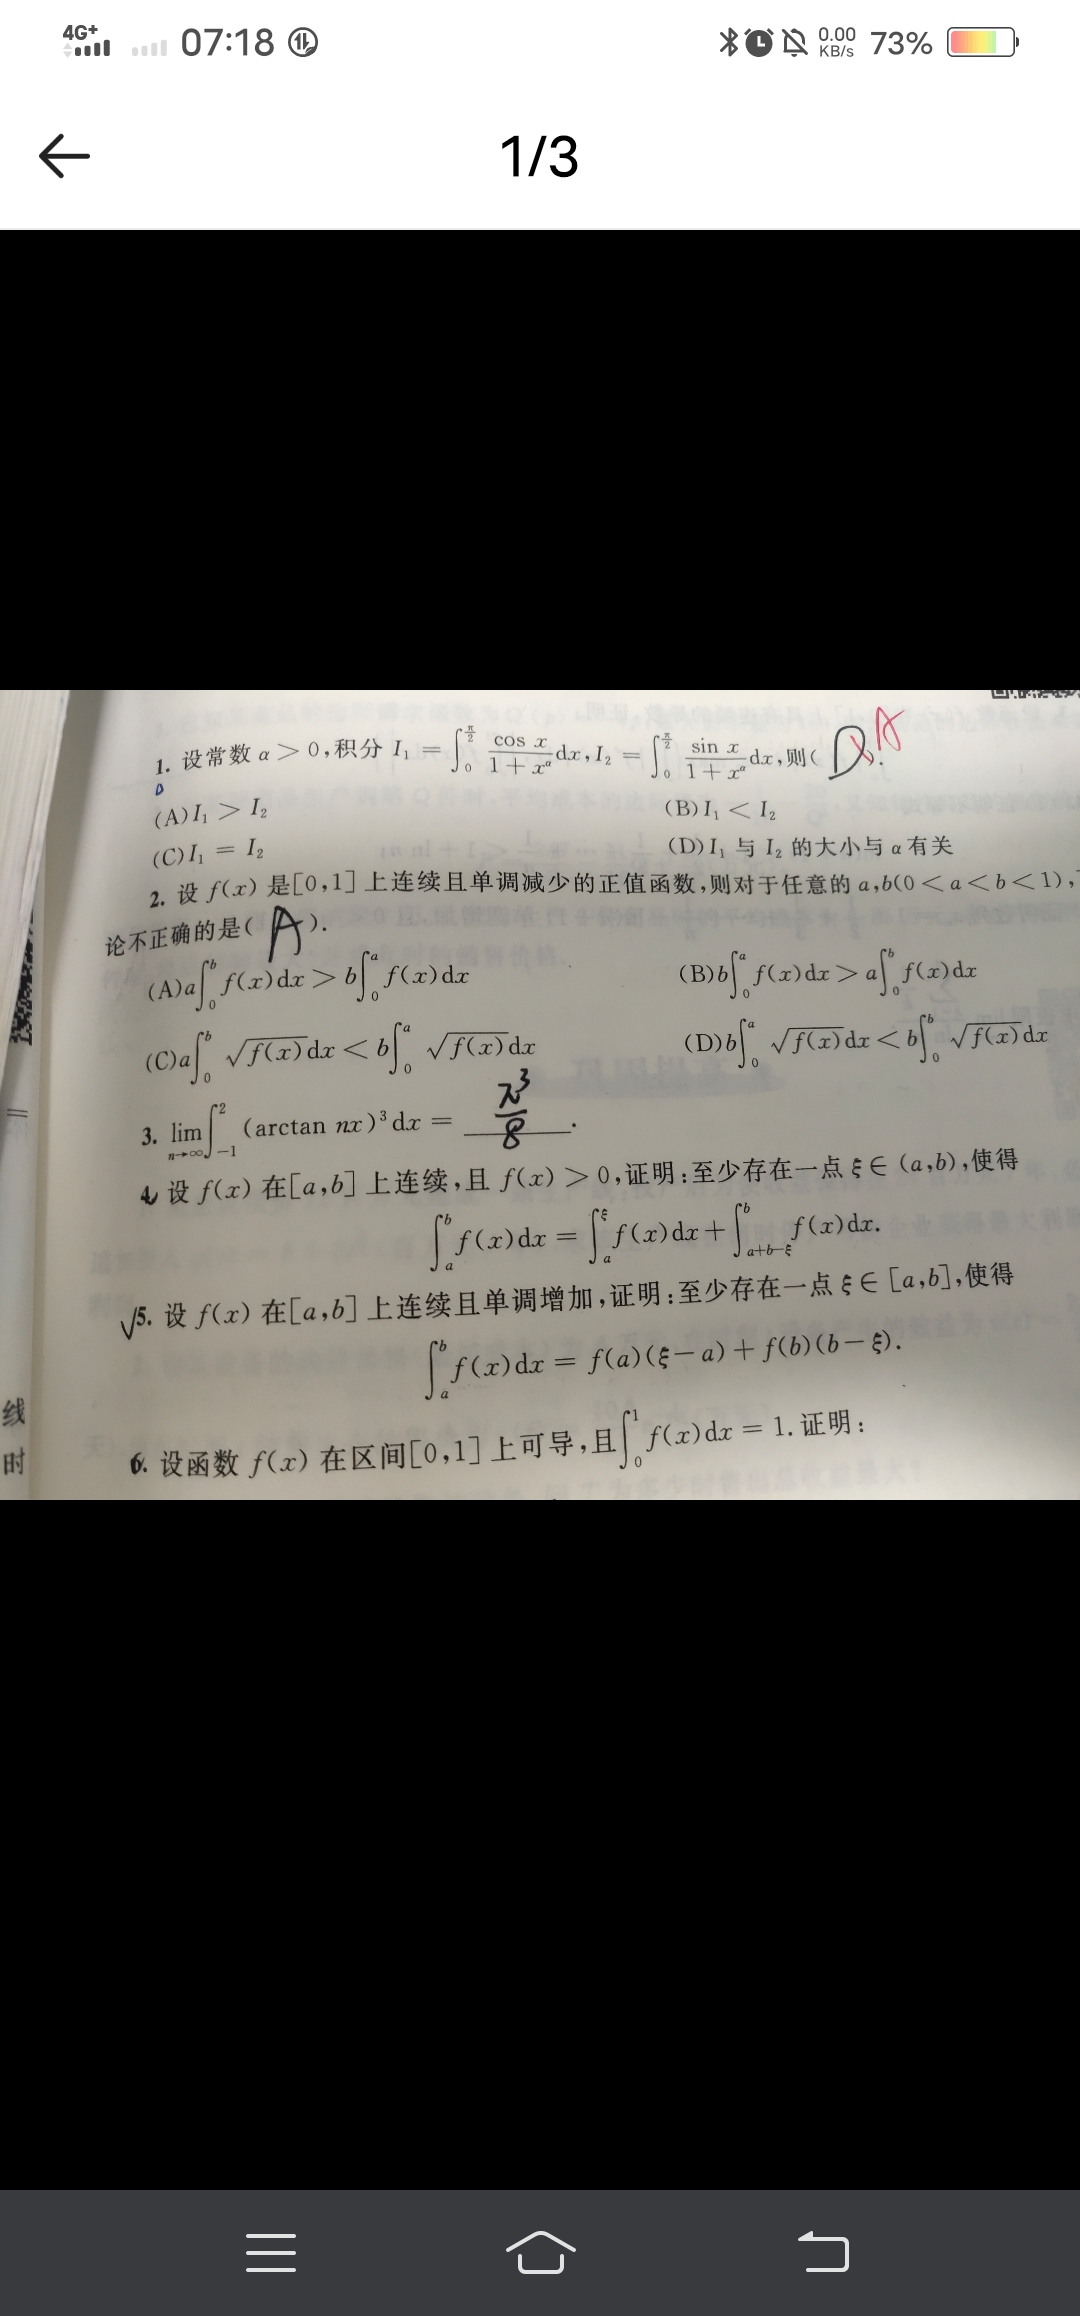 4G+ 07:18 0.00 KB/s 73%
1/3
1. 设常数 α > 0,积分 I₁ = ∫₀^{π/2} cos x/(1+x^α) dx, I₂ = ∫₀^{π/2} sin x/(1+x^α) dx,则( D ). A
(A)I₁ > I₂ (B)I₁ < I₂
(C)I₁ = I₂ (D)I₁ 与 I₂ 的大小与 α 有关
2. 设 f(x) 是[0,1]上连续且单调减少的正值函数,则对于任意的 a,b(0<a<b<1),
论不正确的是( A ).
(A)a∫₀^b f(x)dx > b∫₀^a f(x)dx (B)b∫₀^a f(x)dx > a∫₀^b f(x)dx
(C)a∫₀^b √f(x) dx < b∫₀^a √f(x) dx (D)b∫₀^a √f(x) dx < b∫₀^b √f(x) dx
3. lim_{n→∞} ∫_{-1}^{2} (arctan nx)³dx = π³/8 .
4. 设 f(x) 在[a,b]上连续,且 f(x) > 0,证明:至少存在一点 ξ∈(a,b),使得
∫_a^b f(x)dx = ∫_a^ξ f(x)dx + ∫_{a+b-ξ}^b f(x)dx.
√5. 设 f(x) 在[a,b]上连续且单调增加,证明:至少存在一点 ξ∈[a,b],使得
∫_a^b f(x)dx = f(a)(ξ-a)+f(b)(b-ξ).
线
时
6. 设函数 f(x) 在区间[0,1]上可导,且∫₀^1 f(x)dx = 1. 证明: